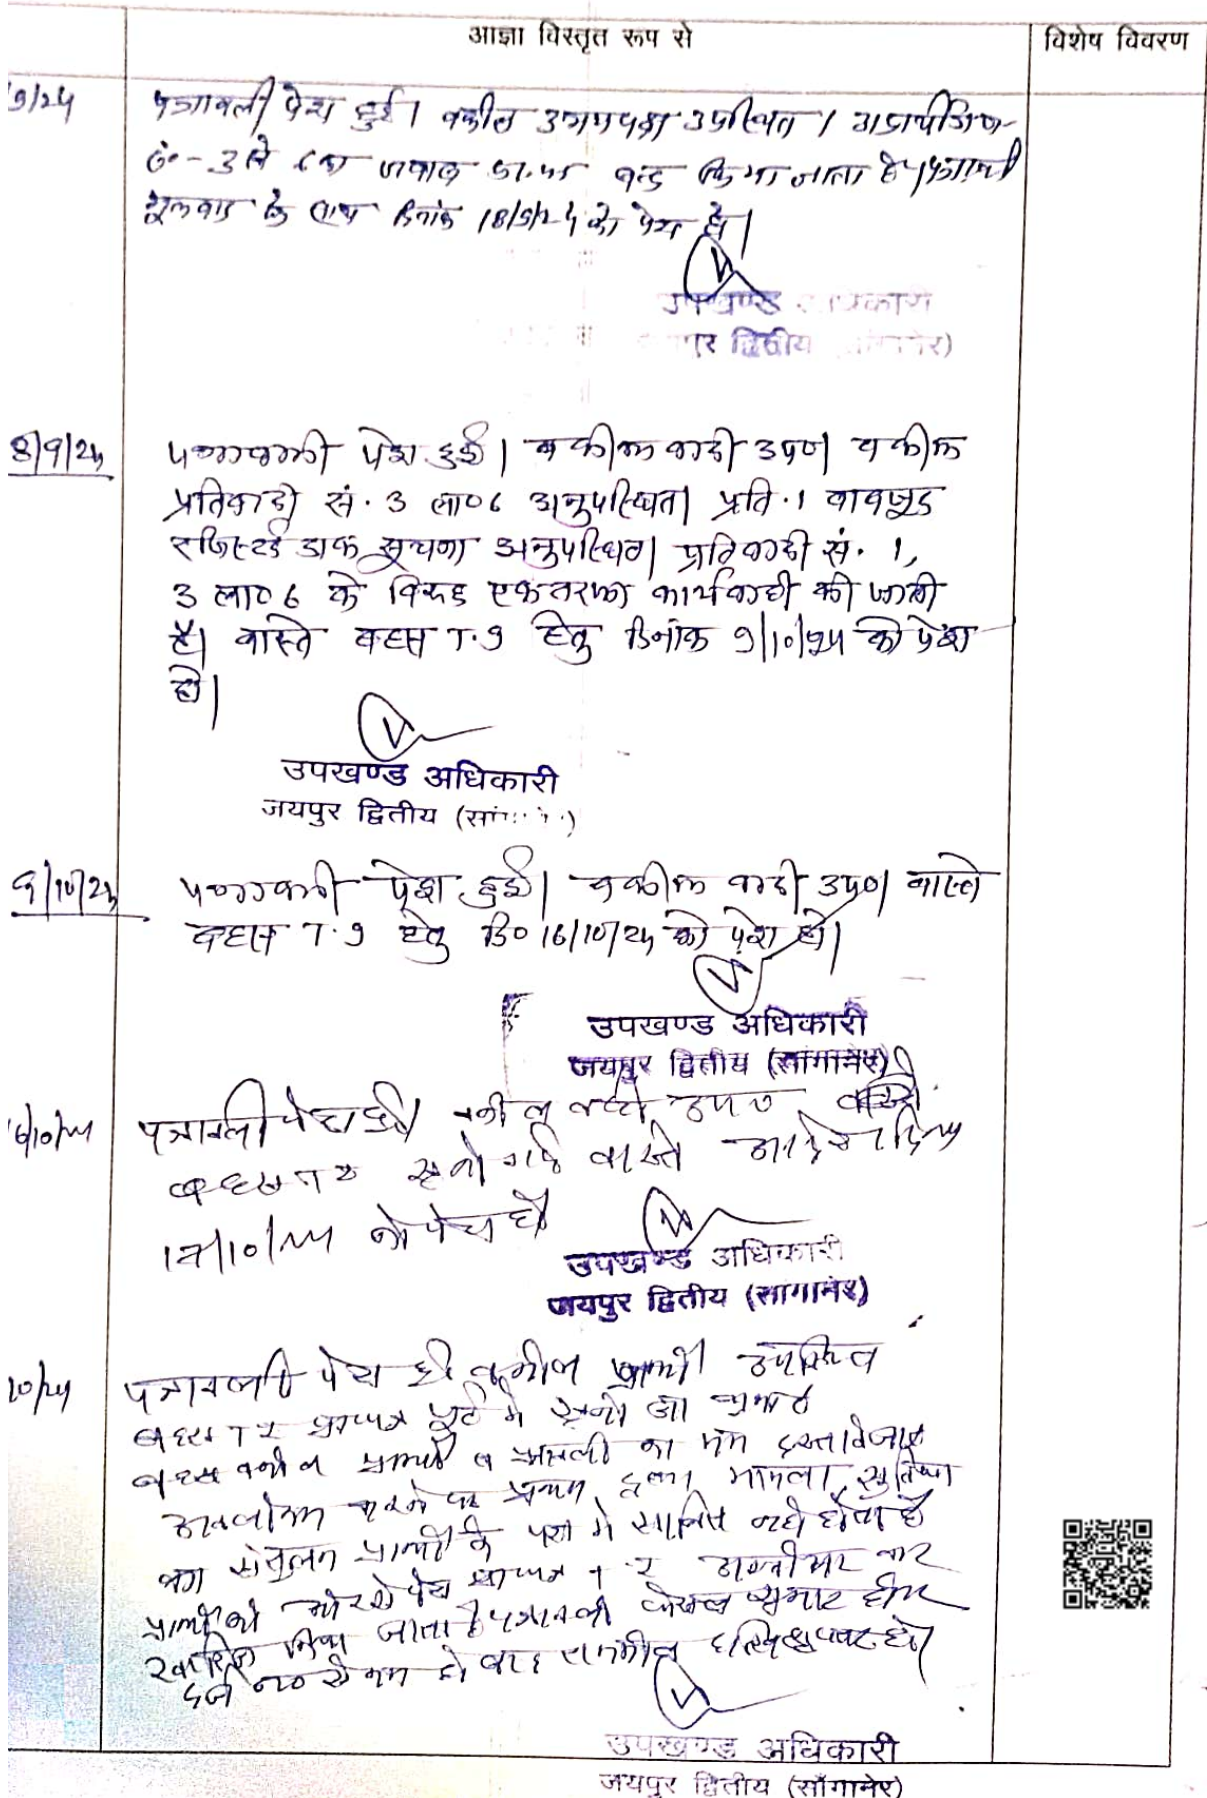 आज्ञा विस्तृत रूप से
विशेष विवरण
9/24
पत्रावली पेश हुई। वकील उभयपक्ष उपस्थित।
3 से 6 का जवाब बन्द किया जाता है।
के साथ दिनांक 18/9/24 को पेश हो।
उपखण्ड
द्वितीय
8/9/24
पत्रावली पेश हुई। वकील वादी उप०। वकील
प्रतिवादी सं. 3 ला० 6 अनुपस्थित। प्रति. 1 बावजूद
रजिस्टर्ड डाक सूचना अनुपस्थित। प्रतिवादी सं. 1,
3 ला० 6 के विरुद्ध एकतरफा कार्यवाही की जाती
है। वास्ते बहस T.I हेतु दिनांक 9/10/24 को पेश
हो।
उपखण्ड अधिकारी
जयपुर द्वितीय
9/10/24
पत्रावली पेश हुई। वकील वादी उप०। वास्ते
बहस T.I हेतु दि० 16/10/24 को पेश हो।
उपखण्ड अधिकारी
जयपुर द्वितीय (सांगानेर)
16/10/24
पत्रावली पेश हुई। वकील वादी उप०
बहस सुनी गई वास्ते आदेश दिनांक
17/10/24 को पेश हो
उपखण्ड अधिकारी
जयपुर द्वितीय (सांगानेर)
10/24
पत्रावली पेश हुई वकील प्रार्थी उपस्थित
बहस पूर्व में सुनी जा चुकी है
बहस वकील प्रार्थी व पत्रावली का मय दस्तावेजात
अवलोकन करने पर प्रथम दृष्टया मामला, सुविधा
का संतुलन प्रार्थी के पक्ष में साबित नहीं होता है
प्रार्थी की ओर से पेश अस्वीकार कर
खारिज किया जाता है पत्रावली फैसल शुमार होकर
दर्ज न० से कम हो बाद दाखिल दफ्तर हो।
उपखण्ड अधिकारी
जयपुर द्वितीय (साँगानेर)